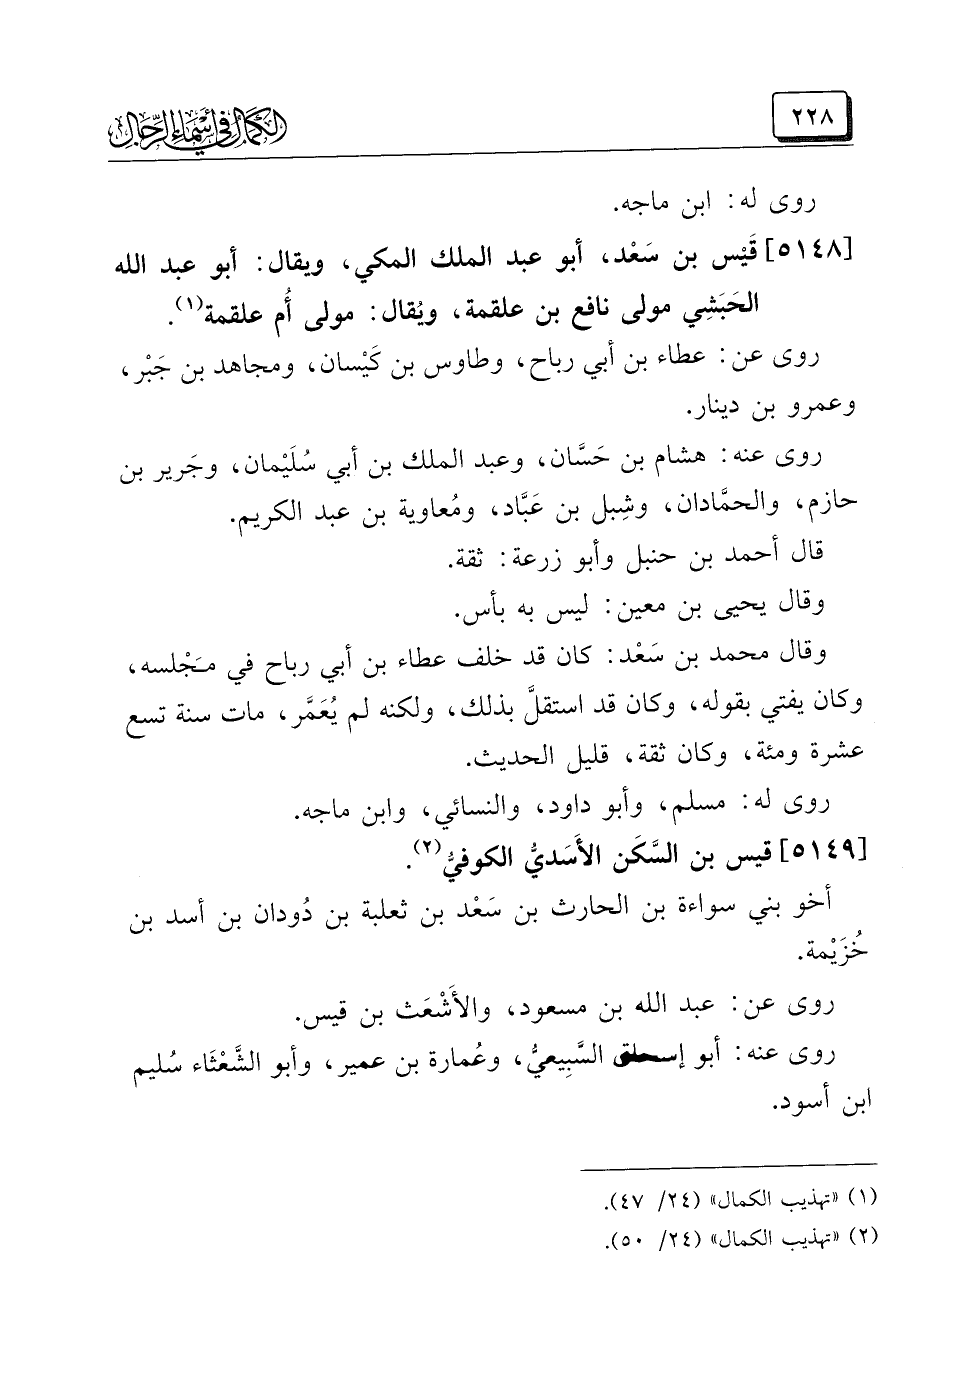 ٢٢٨
الكمال في أسماء الرجال
روى له: ابن ماجه.
[٥١٤٨] قَيْس بن سَعْد، أبو عبد الملك المكي، ويقال: أبو عبد الله
الحَبَشِي مولى نافع بن علقمة، ويُقال: مولى أُم علقمة(١).
روى عن: عطاء بن أبي رباح، وطاوس بن كَيْسان، ومجاهد بن جَبْر،
وعمرو بن دينار.
روى عنه: هشام بن حَسَّان، وعبد الملك بن أبي سُلَيْمان، وجَرير بن
حازم، والحمَّادان، وشِبل بن عَبَّاد، ومُعاوية بن عبد الكريم.
قال أحمد بن حنبل وأبو زرعة: ثقة.
وقال يحيى بن معين: ليس به بأس.
وقال محمد بن سَعْد: كان قد خلف عطاء بن أبي رباح في مَجْلسه،
وكان يفتي بقوله، وكان قد استقلَّ بذلك، ولكنه لم يُعَمَّر، مات سنة تسع
عشرة ومئة، وكان ثقة، قليل الحديث.
روى له: مسلم، وأبو داود، والنسائي، وابن ماجه.
[٥١٤٩] قيس بن السَّكَن الأَسَديُّ الكوفيُّ(٢).
أخو بني سواءة بن الحارث بن سَعْد بن ثعلبة بن دُودان بن أسد بن
خُزَيْمة.
روى عن: عبد الله بن مسعود، والأَشْعَث بن قيس.
روى عنه: أبو إسحاق السَّبِيعيُّ، وعُمارة بن عمير، وأبو الشَّعْثَاء سُليم
ابن أسود.
(١) «تهذيب الكمال» (٢٤/ ٤٧).
(٢) «تهذيب الكمال» (٢٤/ ٥٠).